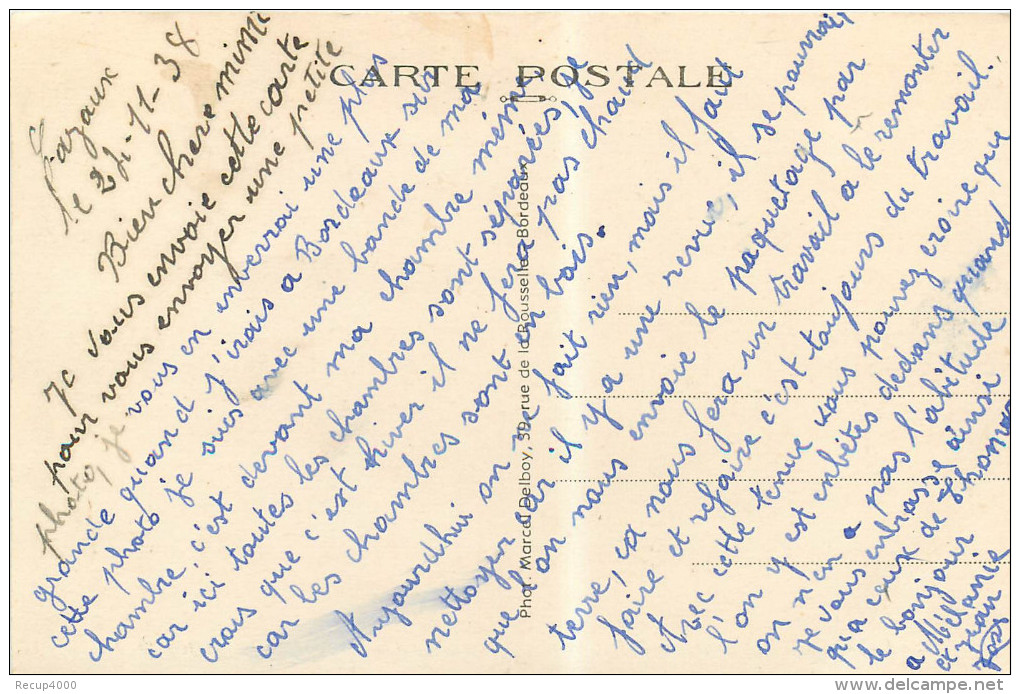 CARTE POSTALE
Cazaux
le 24-11-38
Bien chere mimi
Je vous envoie cette carte
pour vous envoyer une petite
photo, je vous en enverrai une plus
grande quand j'irais a Bordeaux sur
cette photo je suis avec une bande de ma
chambre, c'est devant ma chambre même
car ici toutes les chambres sont séparées, je
crois que c'est hiver il ne fera pas chaud
car les chambres sont en bois.
Aujourd'hui on ne fait rien, mais il faut
nettoyer car il y a une revue, il se pourrait
que l'on nous envoie le paquetage par
terre, ca nous fera un travail a le remonter
faire et refaire c'est toujours du travail.
Avec cette tenue vous pouvez croire que
l'on y est embêtes dedans quand
on n'en a pas l'abitude
Je vous embrasse ainsi
qu'a ceux de
le bonjour
a Mélanie
et
Jean
Phot. Marcel Delboy, 39, rue de la Rousselle - Bordeaux
Recup4000
www.delcampe.net